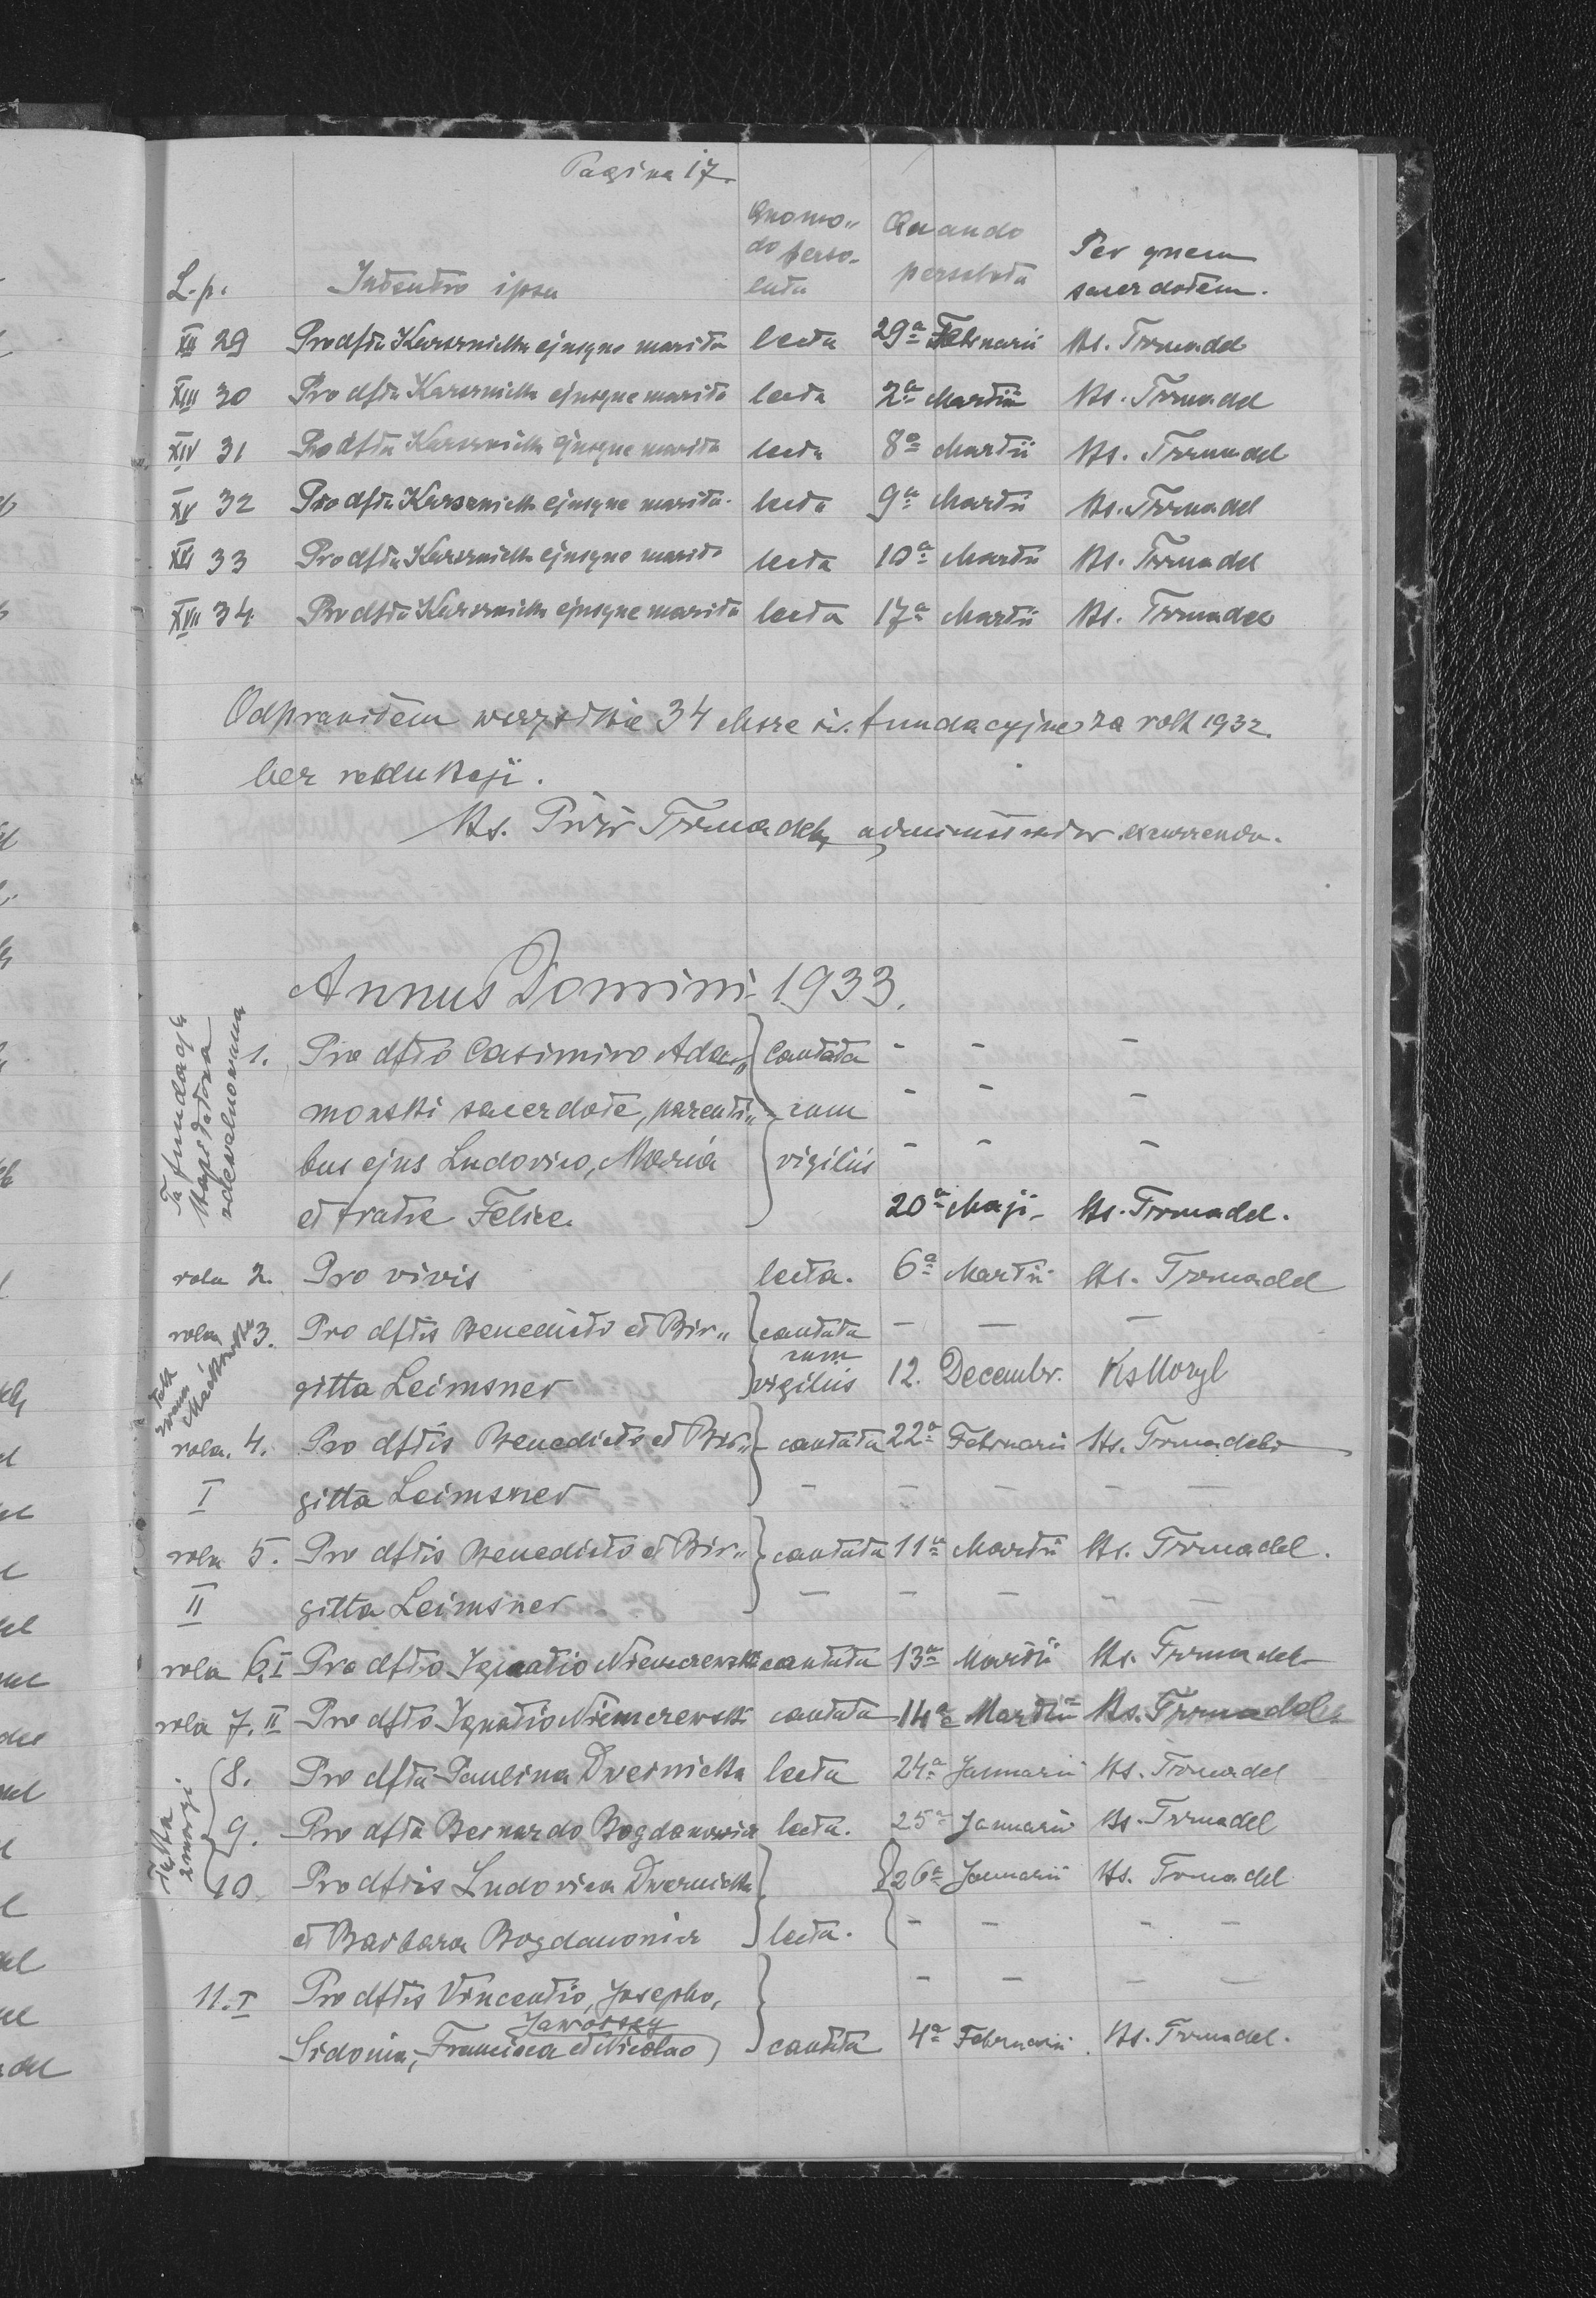 Pagina 17.
L.p. Intentio ipsa Quomo„ do perso- luta Quando persoluta Per quem sacerdotem.
XII 29 Pro dfta Karsznicka ejusque marito lecta 29a Februarii Ks. Trznadel
XIII 30 Pro dfta Karsznicka ejusque marito lecta 2a Martii Ks. Trznadel
XIV 31 Pro dfta Karsznicka ejusque marito lecta 8a Martii Ks. Trznadel
XV 32 Pro dfta Karsznicka ejusque marito lecta 9a Martii Ks. Trznadel
XVI 33 Pro dfta Karsznicka ejusque marito lecta 10a Martii Ks. Trznadel
XVII 34 Pro dfta Karsznicka ejusque marito lecta 17a Martii Ks. Trznadel
Odprawiłem wszystkie 34 Msze św. fundacyjne za rok 1932.
bez redukcji.
Ks. Piotr Trznadel, administrator excurrendo.
Annus Domini 1933.
Ta fundacja
kapitałowa
zdewaluowana
1. Pro dfto Casimiro Ada„ cantata - - -
mowski sacerdote, parenti„ cum - - -
bus ejus Ludovico, Maria vigiliis - - -
et fratre Felice. 20a Maji - Ks. Trznadel.
rola 2. Pro vivis lecta. 6a Martii Ks. Trznadel
rola 3. Pro dftis Benedicto et Bir„ cantata - - -
tak zwana Maćkowska
gitta Leimsner cum vigiliis 12. Decembr. Ks Mozyl
rola. 4. Pro dftis Benedicto et Bir„ cantata 22a Februarii Ks. Trznadel
I gitta Leimsner - - - - -
rola 5. Pro dftis Benedicto et Bir„ cantata 11a Martii Ks. Trznadel.
II gitta Leimsner - - - - -
rola 6. I Pro dfto Ignatio Niemczewski cantata 13a Martii Ks. Trznadel
rola 7. II Pro dfto Ignatio Niemczewski cantata 14a Martii Ks. Trznadel
łąka
8. Pro dfta Paulina Dwernicka lecta 24a Januarii Ks. Trznadel
9. Pro dfto Bernardo Bogdanowicz lecta. 25a Januarii Ks. Trznadel
10 Pro dftis Ludovica Dwernicka 26a Januarii Ks. Trznadel
et Barbara Bogdanowicz lecta. - - - -
11. I Pro dftis Vincentio, Josepho, - - - -
Jaworscy
Sidonia, Francisca et Nicolao cantata 4a Februarii Ks. Trznadel.